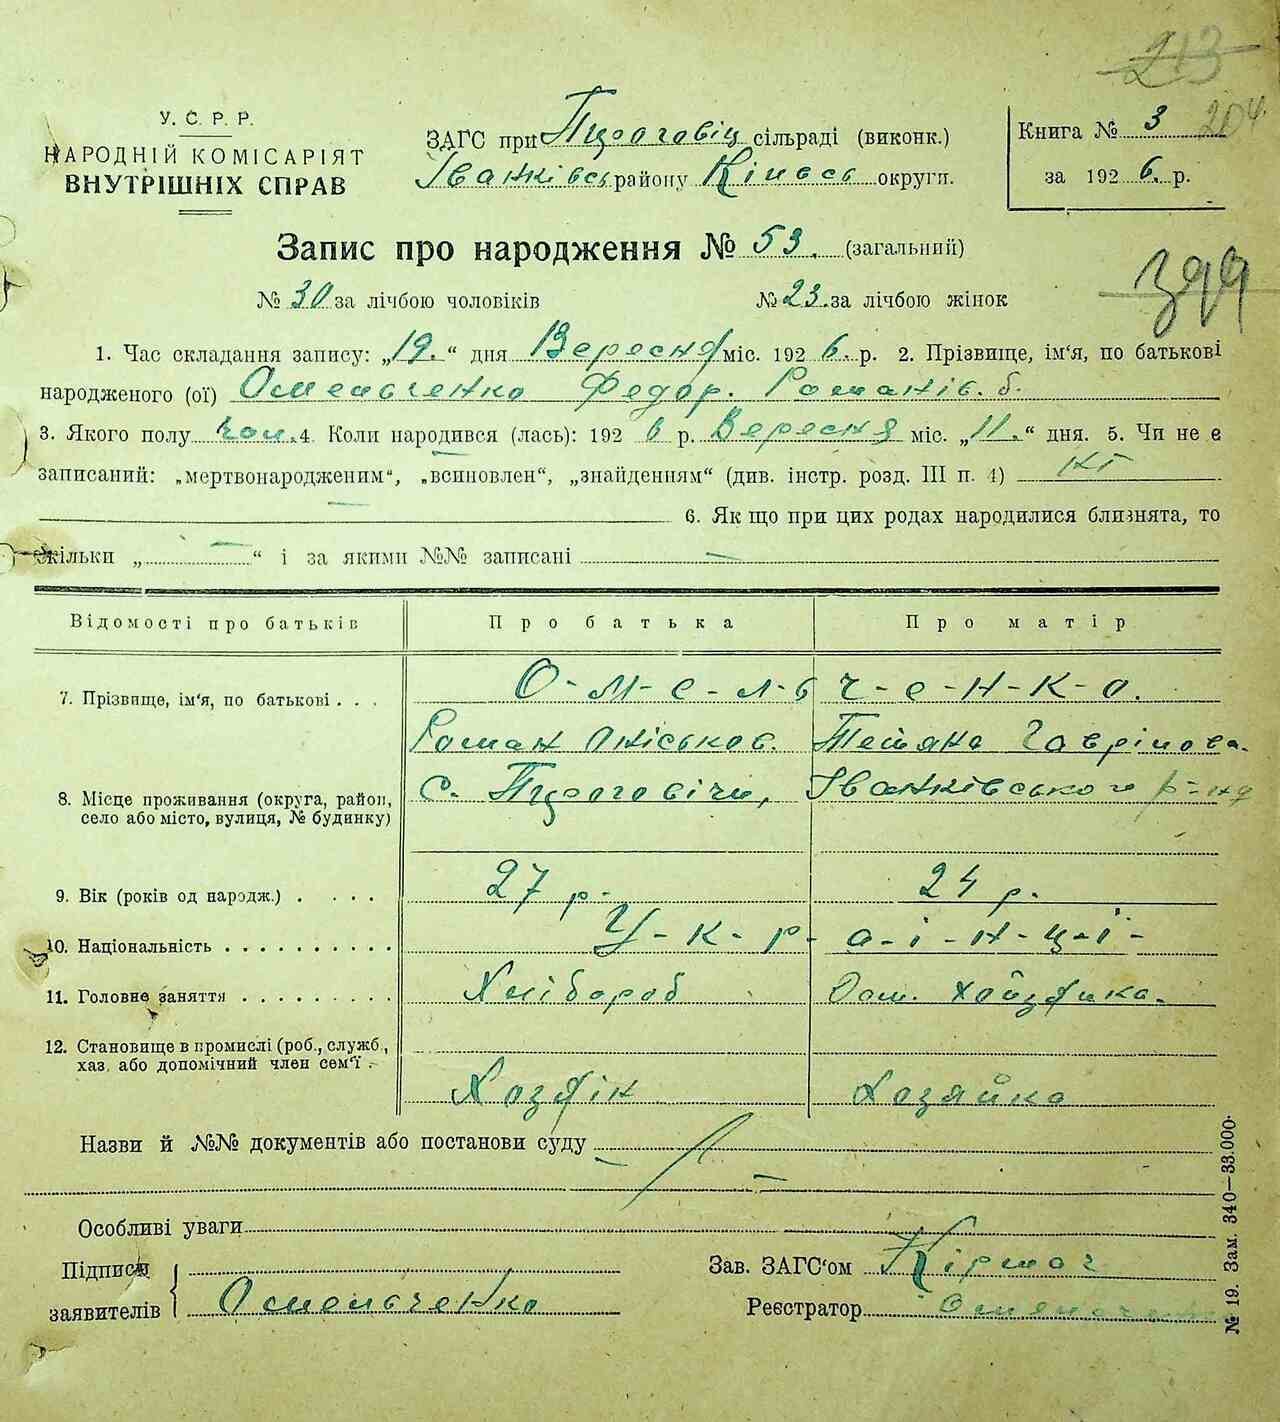 213
204
У. С. Р. Р.
НАРОДНІЙ КОМІСАРІЯТ
ВНУТРІШНІХ СПРАВ
ЗАГС при сільраді (виконк.)
Іванківсь району Київсь округи.
Книга № 3
за 1926. р.
Запис про народження № 53. (загальний)
№ 30 за лічбою чоловіків № 23. за лічбою жінок
399
1. Час складання запису: „19.“ дня Вересня міс. 1926. р. 2. Прізвище, ім'я, по батькові
народженого (ої) Омельченко Федор. Романів. б.
3. Якого полу чол. 4. Коли народився (лась): 1926 р. Вересня міс. „11.“ дня. 5. Чи не є
записаний: „мертвонародженим“, „всиновлен“, „знайденням“ (див. інстр. розд. III п. 4) ні
6. Як що при цих родах народилися близнята, то
скільки „ — “ і за якими №№ записані —
Відомості про батьків Про батька Про матір
7. Прізвище, ім'я, по батькові . . . О-м-е-л-ь ч-е-н-к-о.
Роман Оніськов. Тетяна Гаврілова.
8. Місце проживання (округа, район,
село або місто, вулиця, № будинку)
с. Іванківського р-на
9. Вік (років од народж.) . . . . 27 р. 24 р.
10. Національність . . . . . . . . . . У-к-р- а-ї-н-ц-і-
11. Головне заняття . . . . . . . . . Хлібороб Дом. хозяйка.
12. Становище в промислі (роб., служб.,
хаз. або допомічний член сем'ї .
Хозяїн Хозяйка
Назви й №№ документів або постанови суду
Особливі уваги
Підписи
заявителів
Омельченко
Зав. ЗАГС'ом
Реєстратор
№ 19. Зам. 340—33.000.